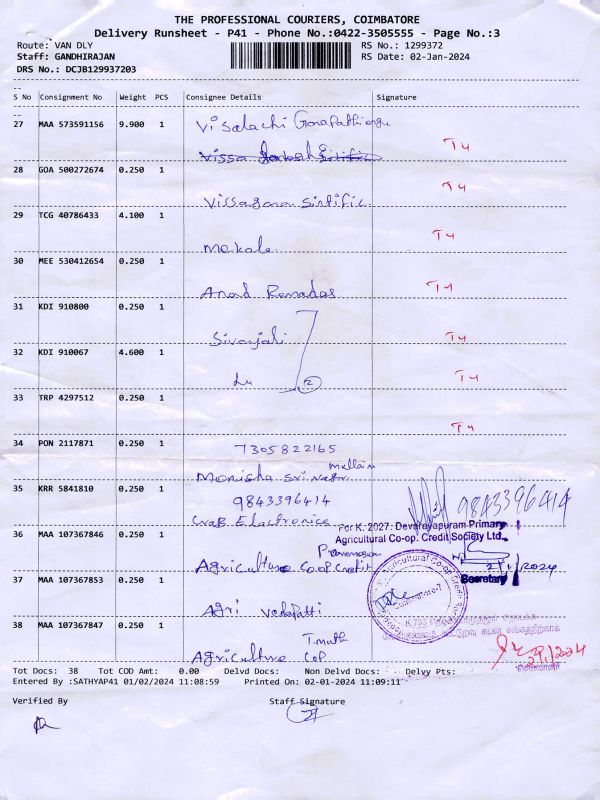 THE PROFESSIONAL COURIERS, COIMBATORE
Delivery Runsheet - P41 - Phone No.:0422-3505555 - Page No.:3
Route: VAN DLY
RS No.: 1299372
Staff: GANDHIRAJAN
RS Date: 02-Jan-2024
DRS No.: DCJB129937203
S No Consignment No Weight PCS Consignee Details Signature
27 MAA 573591156 9.900 1
T4
28 GOA 500272674 0.250 1
T4
29 TCG 40786433 4.100 1
T4
30 MEE 530412654 0.250 1
Anad Ramadas T4
31 KDI 910800 0.250 1
Sivanjali T4
32 KDI 910067 4.600 1
T4
33 TRP 4297512 0.250 1
T4
34 PON 2117871 0.250 1
7305822165
Monisha
35 KRR 5841810 0.250 1
9843396414 9843396414
Crab Electronics
For K. 2027. Devarayapuram Primary
Agricultural Co-op. Credit Society Ltd.,
36 MAA 107367846 0.250 1
Agriculture Co op Credit
2/1/2024
Secretary
37 MAA 107367853 0.250 1
Agri Vedapatti
38 MAA 107367847 0.250 1
T.muth
Agriculture Cop
Tot Docs: 38 Tot COD Amt: 0.00 Delvd Docs: Non Delvd Docs: Delvy Pts:
Entered By :SATHYAP41 01/02/2024 11:08:59 Printed On: 02-01-2024 11:09:11
Verified By Staff Signature